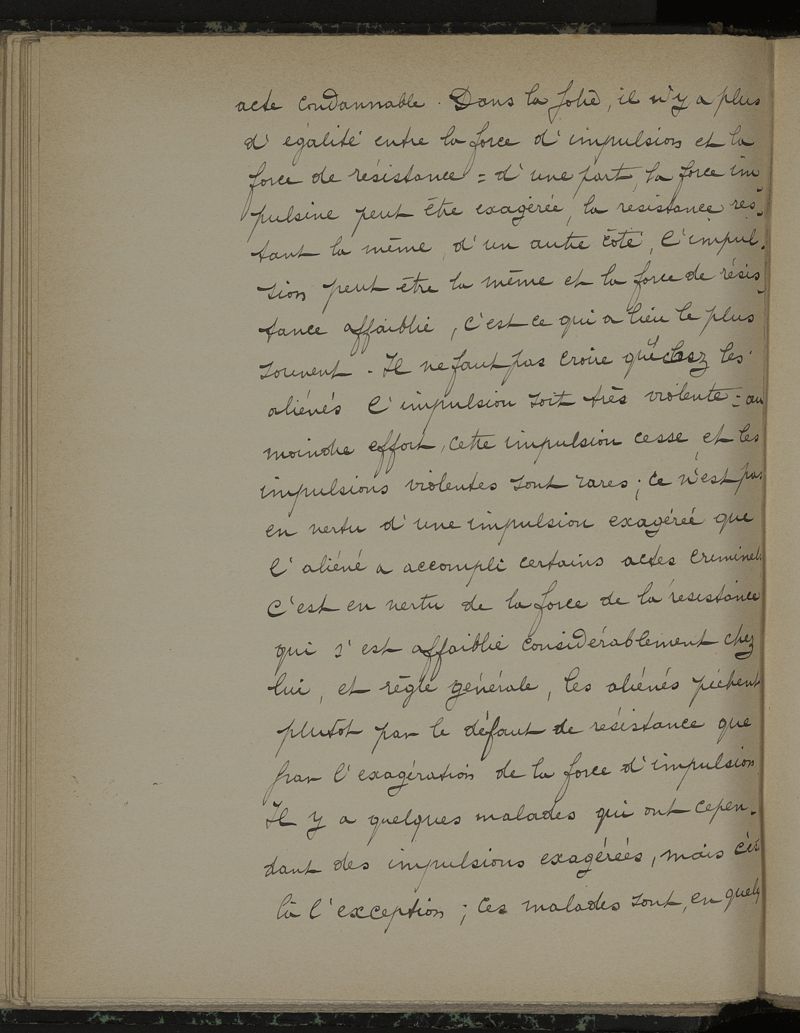 acte condannable. Dans la folie, il n'y a plus
d'égalité entre la force d'impulsion et la
force de résistance = d'une part, la force im-
pulsive peut être exagérée, la resistance res-
tant la même, d'un autre côté, l'impul-
sion peut être la même et la force de résis-
tance affaiblie, c'est ce qui a lieu le plus
souvent - Il ne faut pas croire que chez les
aliénés l'impulsion soit très violente = au
moindre effort, cette impulsion cesse, et les
impulsions violentes sont rares ; ce n'est pas
en vertu d'une impulsion exagérée que
l'aliéné a accompli certains actes criminels
c'est en vertu de la force de la résistance
qui s'est affaiblie considérablement chez
lui, et règle générale, les aliénés péchent
plutôt par le défaut de résistance que
par l'exagération de la force d'impulsion
Il y a quelques malades qui ont cepen-
dant des impulsions exagérées, mais c'est
là l'exception ; ces malades sont, en quelq